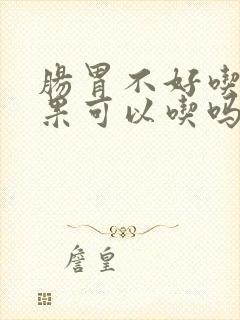 肠胃不好喫
果可以喫吗
詹皇